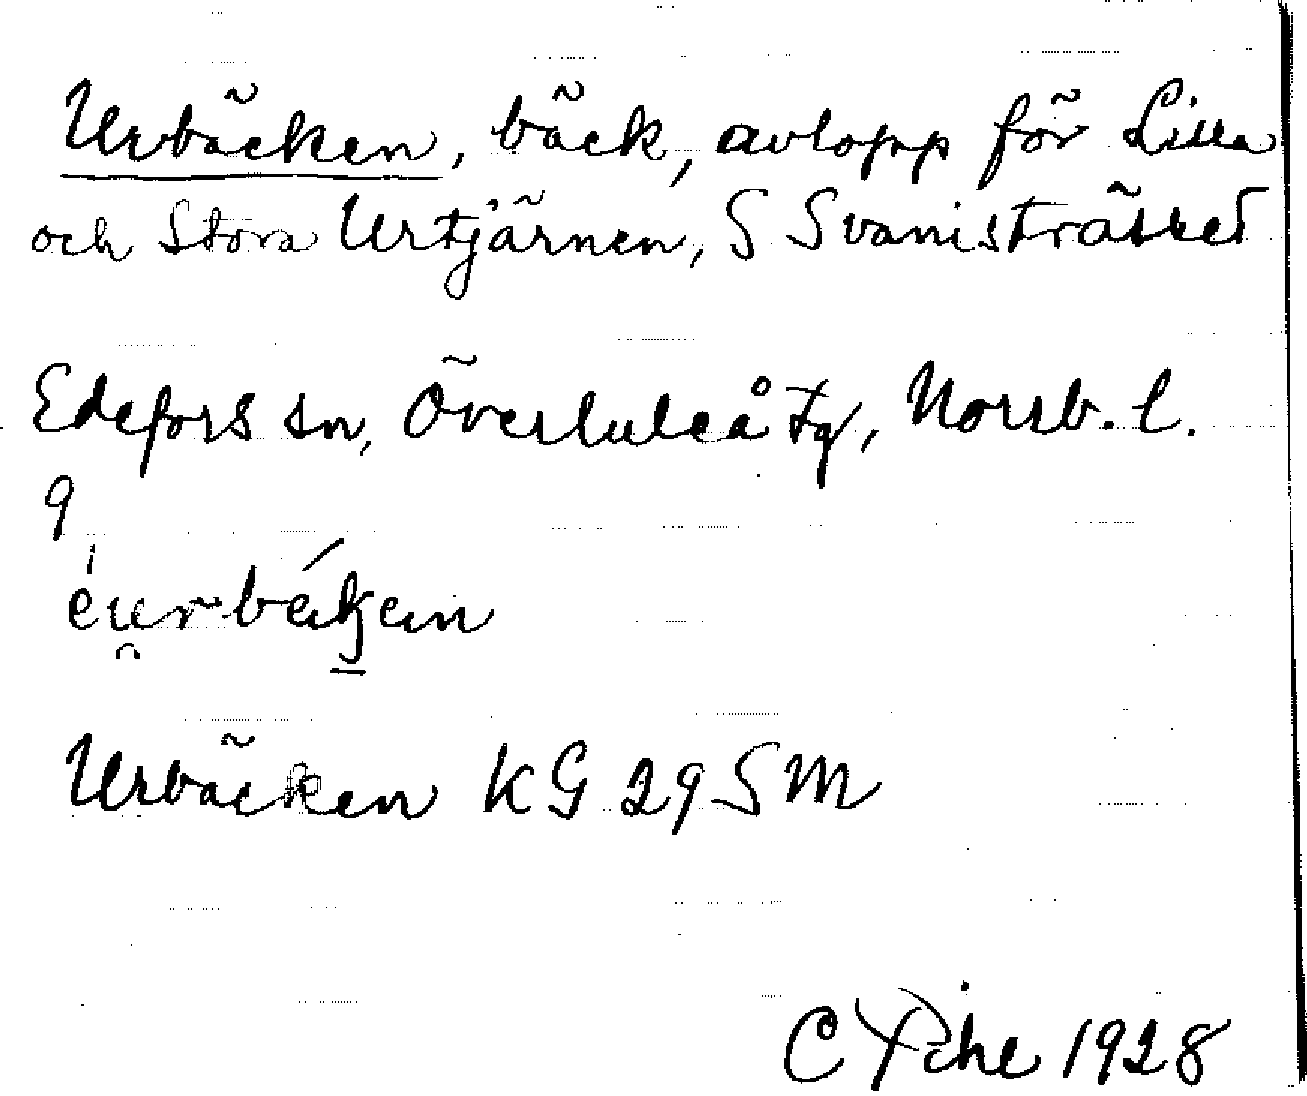 Urbäcken, bäck, avlopp för Lilla
och Stora Urtjärnen, S Svanisträsket
Edefors sn, Överluleå tg, Norrb. l.
9
Urbäcken KG 29 SM
C Pihl 1928